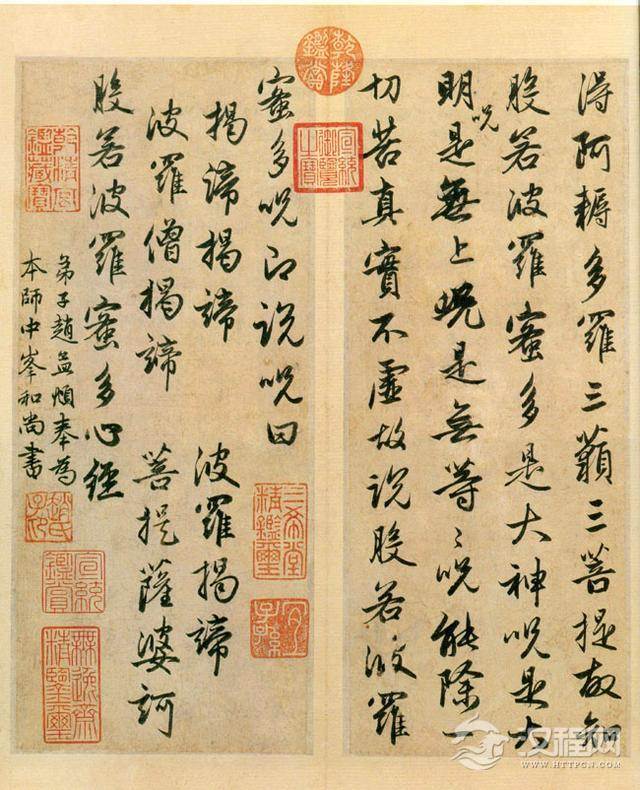 乾隆鑑賞
得阿耨多羅三藐三菩提故知
般若波羅蜜多是大神呪是大
明呪是無上呪是無等〻呪能除一
切苦真實不虛故說般若波羅
宣統御覽之寶
蜜多呪即說呪曰
揭諦揭諦 波羅揭諦
波羅僧揭諦 菩提薩婆訶
般若波羅蜜多心經
弟子趙孟頫奉為
本師中峯和尚書
三希堂精鑑璽
宜子孫
乾清宮鑑藏寶
宣統鑑賞
無逸齋精鑑璽
汉程网
WWW.HTTPCN.COM